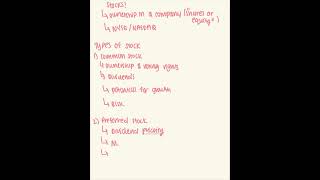 Stocks:
↳ ownership in a company ("shares or equity")
↳ NYSE / NASDAQ
Types of stock
1) Common stock
↳ ownership & voting rights
↳ Dividends
↳ potential for growth
↳ Risk
2) Preferred stock
↳ Dividend priority
↳ M
↳